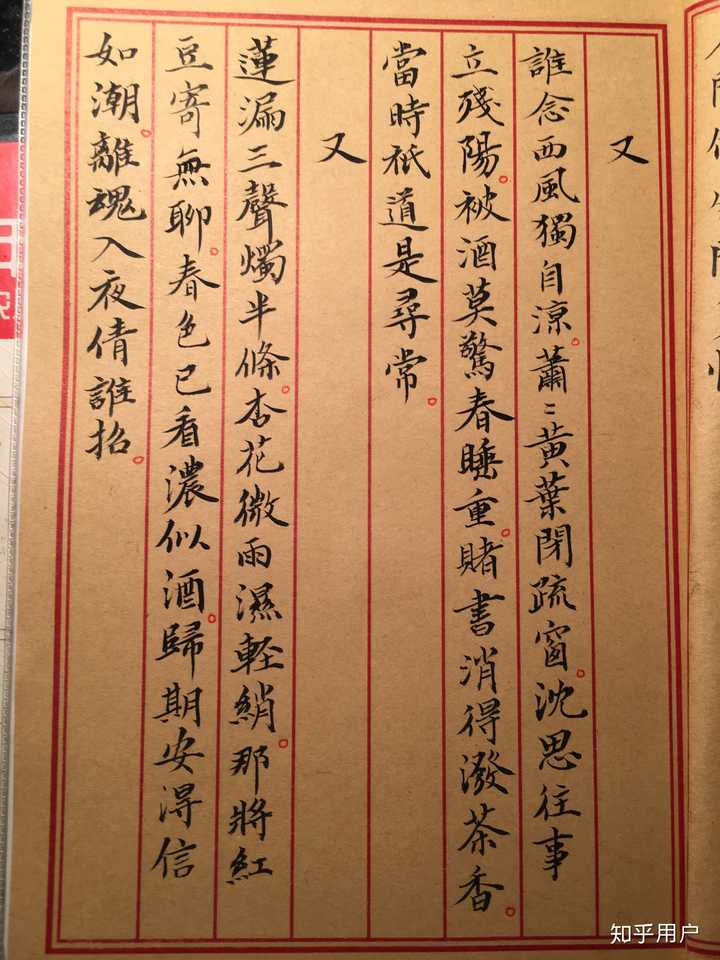 又
誰念西風獨自涼。蕭〻黃葉閉疏窗。沈思往事
立殘陽。被酒莫驚春睡重。賭書消得潑茶香。
當時祇道是尋常。
又
蓮漏三聲燭半條。杏花微雨濕輕綃。那將紅
豆寄無聊。春色已看濃似酒。歸期安得信
如潮。離魂入夜倩誰招。
知乎用户